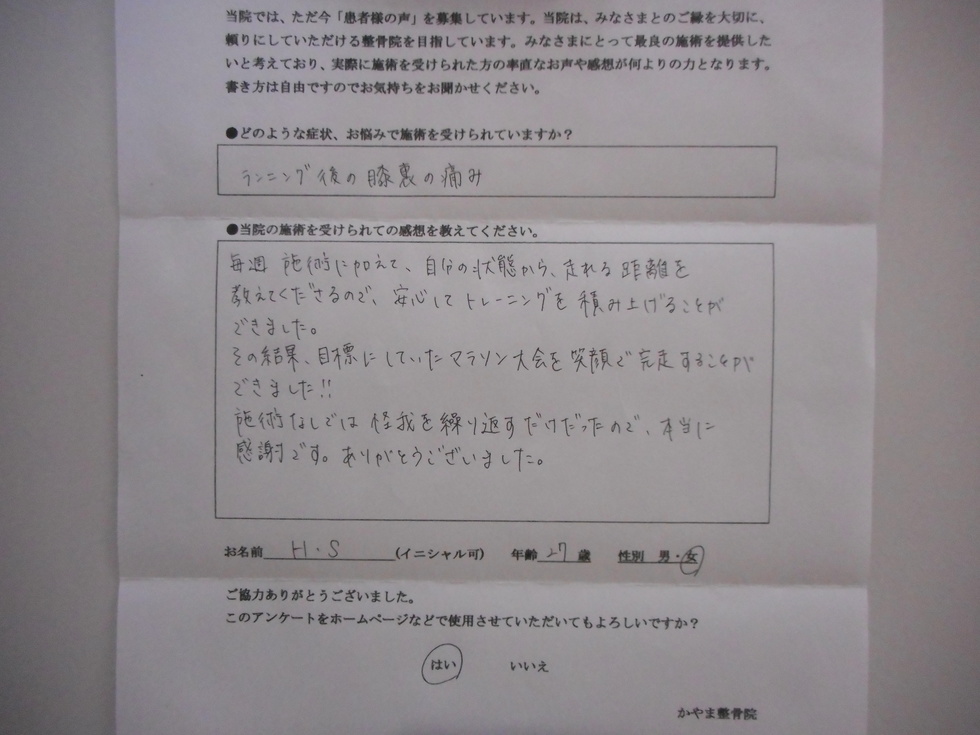 当院では、ただ今「患者様の声」を募集しています。当院は、みなさまとのご縁を大切に、
頼りにしていただける整骨院を目指しています。みなさまにとって最良の施術を提供した
いと考えており、実際に施術を受けられた方の率直なお声や感想が何よりの力となります。
書き方は自由ですのでお気持ちをお聞かせください。
●どのような症状、お悩みで施術を受けられていますか？
ランニング後の膝裏の痛み
●当院の施術を受けられての感想を教えてください。
毎週 施術に加えて、自分の状態から、走れる距離を
教えてくださるので、安心してトレーニングを積み上げることが
できました。
その結果、目標にしていたマラソン大会を笑顔で完走することが
できました!!
施術なしでは怪我を繰り返すだけだったので、本当に
感謝です。ありがとうございました。
お名前 H・S (イニシャル可) 年齢 27 歳 性別 男・女
ご協力ありがとうございました。
このアンケートをホームページなどで使用させていただいてもよろしいですか？
はい いいえ
かやま整骨院